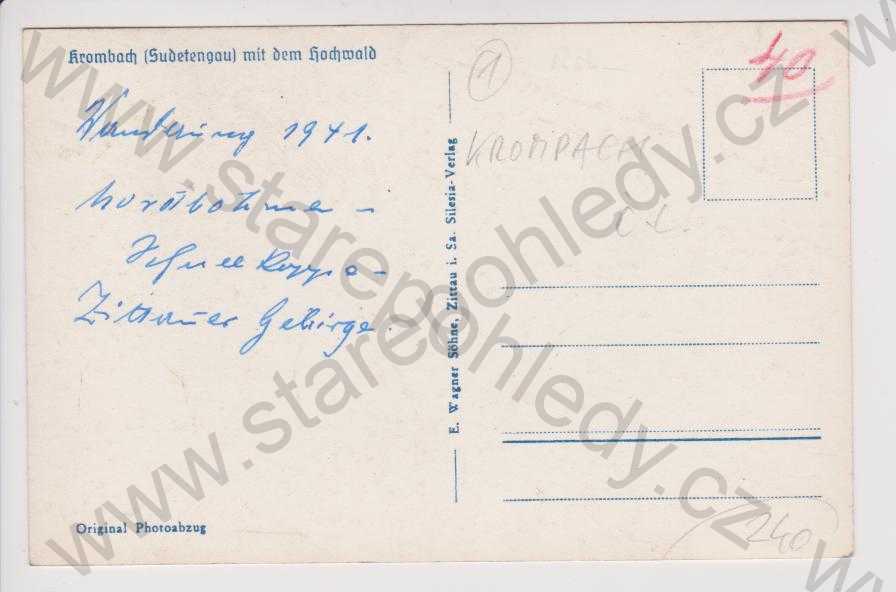 Krombach (Sudetengau) mit dem Hochwald
Wanderung 1941.
Nordböhmen -
Schneekoppe -
Zittauer Gebirge.
Original Photoabzug
E. Wagner Söhne, Zittau i. Sa. Silesia-Verlag
1
40
KROMPACH
240
www.starepohledy.cz
www.starepohledy.cz